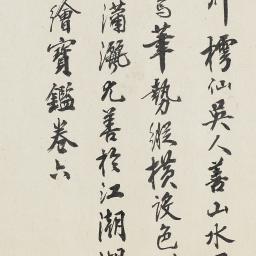 樗仙吳人善山水
筆勢縱橫設色
瀟灑尤善於江潮湖
繪寶鑑卷六